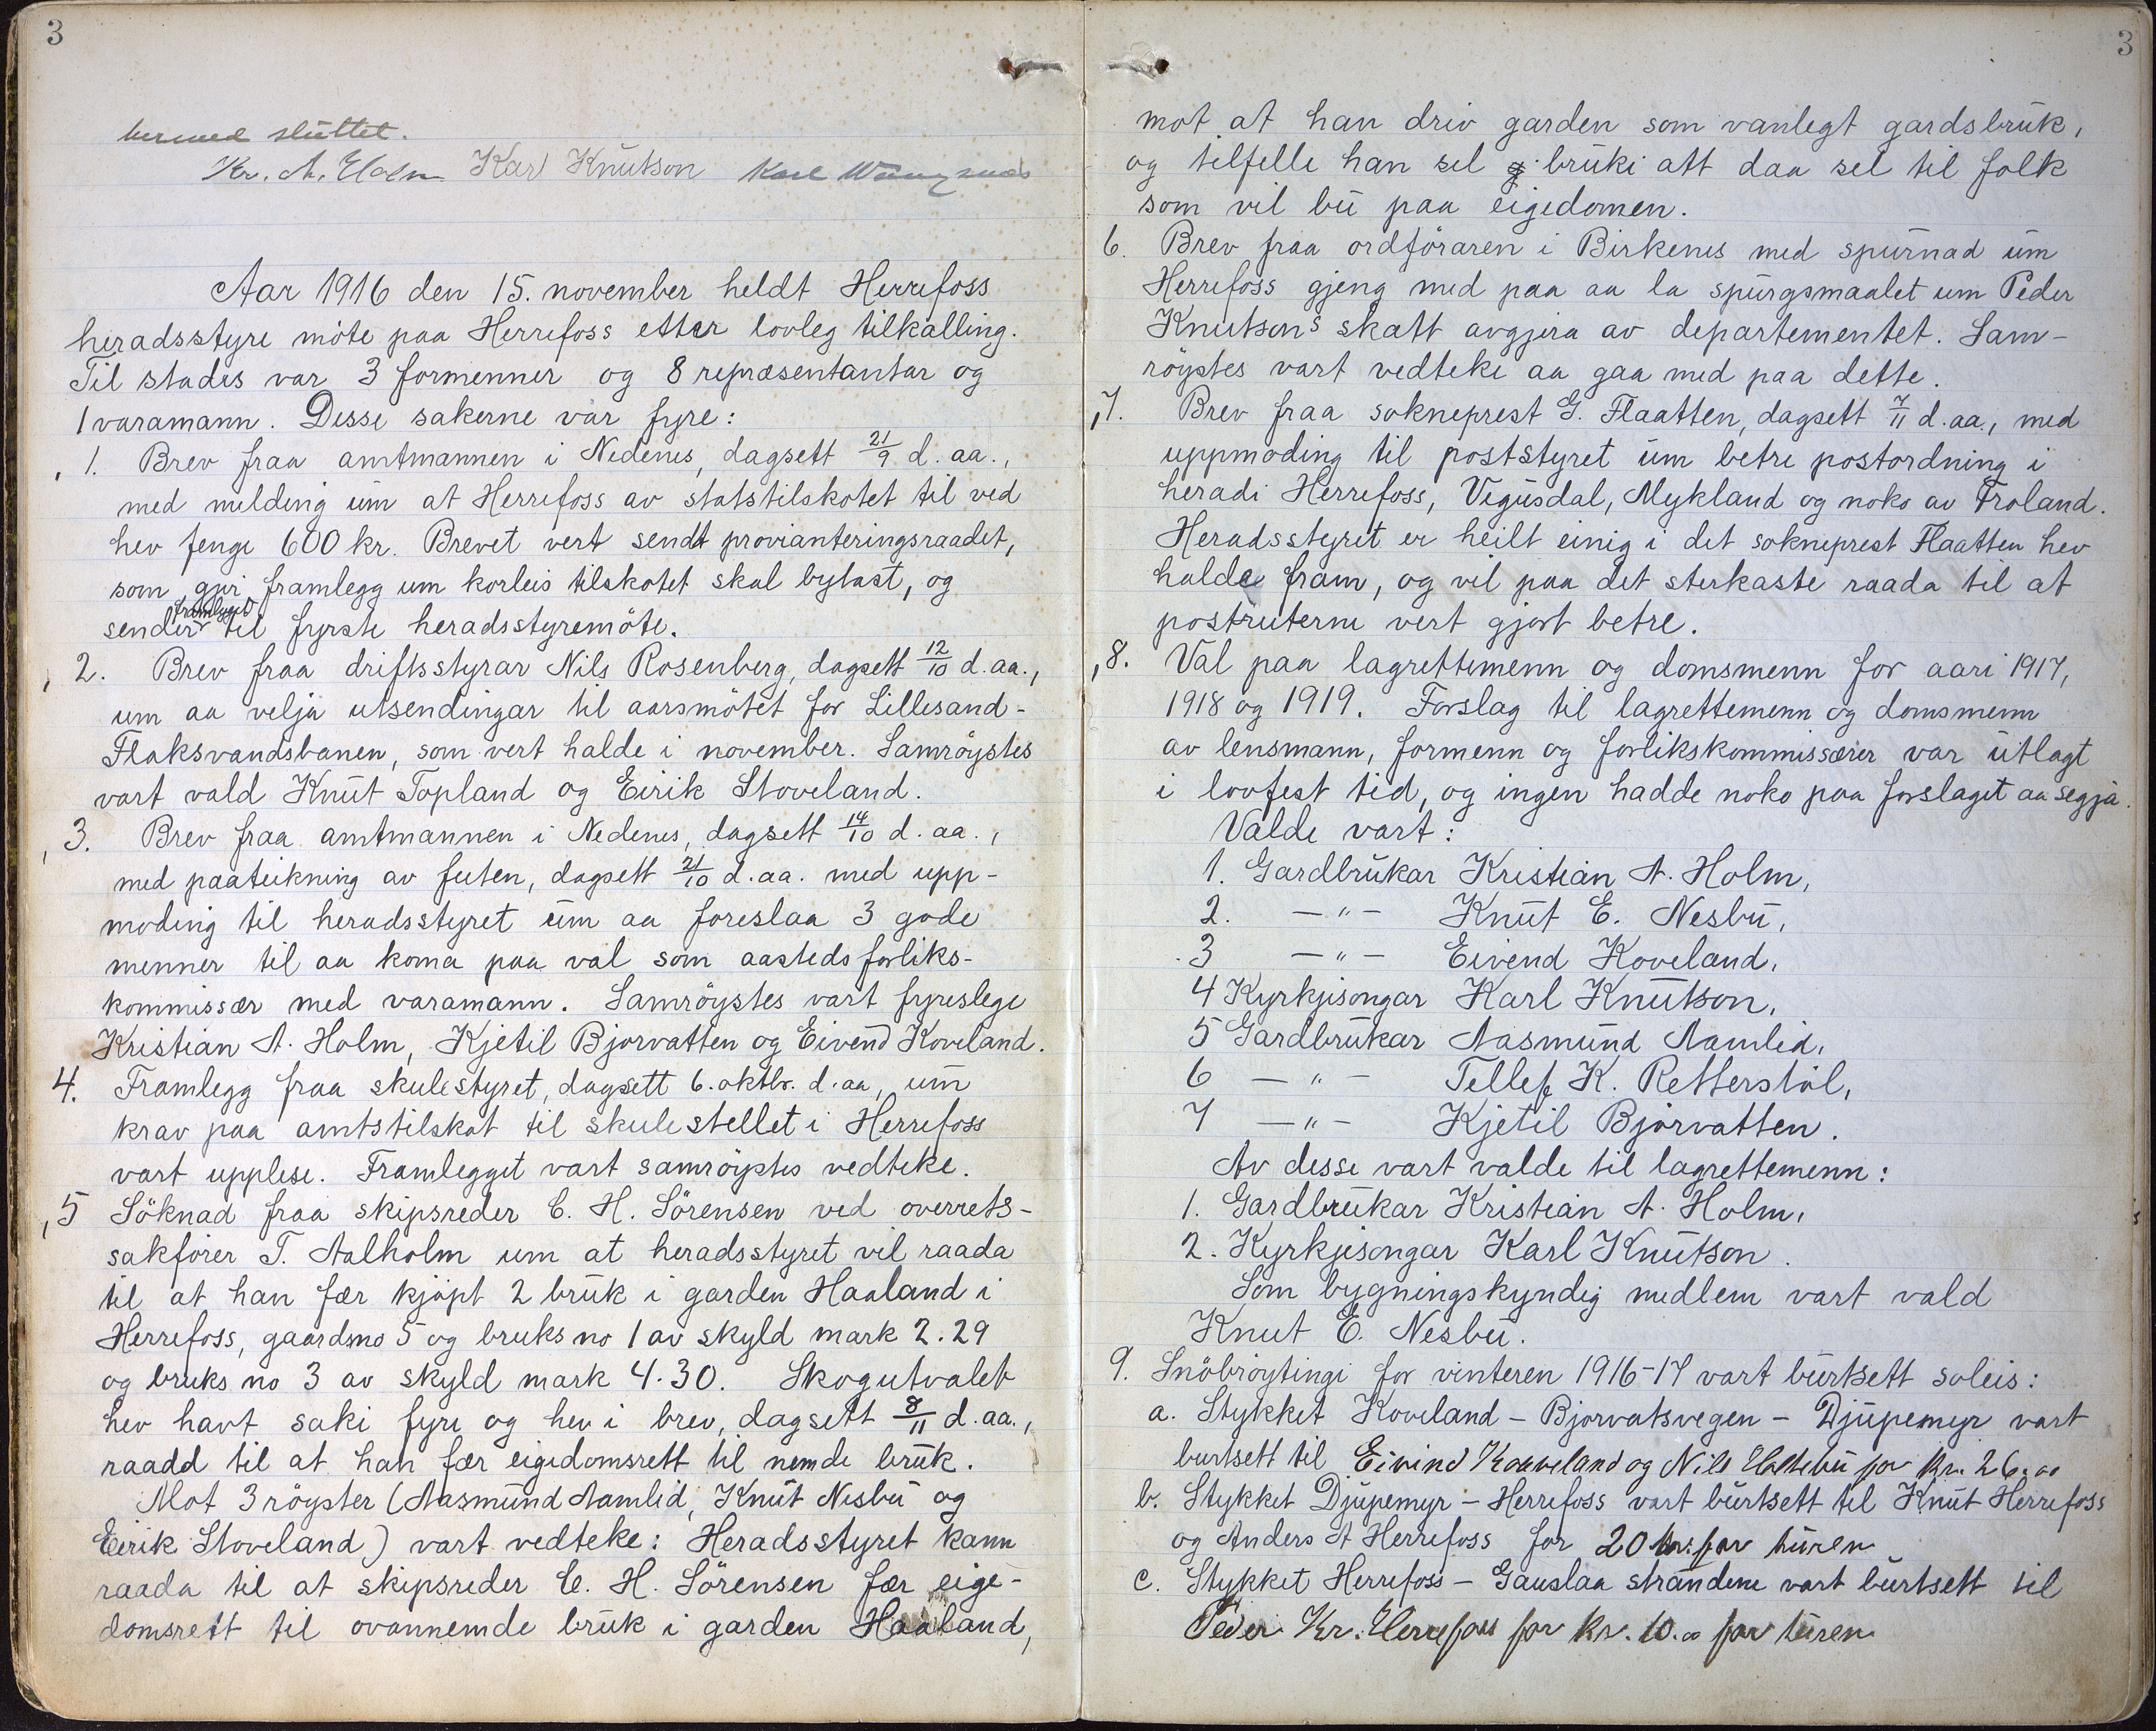 3
hermed sluttet.
Kr. A. Holm Karl Knutson Karl
Aar 1916 den 15. november heldt Herrefoss
heradsstyre möte paa Herrefoss etter lovleg tilkalling.
Til stades var 3 formenner og 8 repræsentantar og
1 varamann. Desse sakerne var fyre:
1. Brev fraa amtmannen i Nedenes, dagsett 21/9 d. aa.,
med melding um at Herrefoss av statstilskotet til ved
hev fenge 600 kr. Brevet vert sendt provianteringsraadet,
som gjer framlegg um korleis tilskotet skal bytast, og
sender framlegget til fyrste heradsstyremöte.
2. Brev fraa driftsstyrar Nils Rosenberg, dagsett 12/10 d. aa.,
um aa velja utsendingar til aarsmötet for Lillesand-
Flaksvandsbanen, som vert halde i november. Samröystes
vart vald Knut Topland og Eirik Stoveland.
3. Brev fraa amtmannen i Nedenes, dagsett 14/10 d. aa.,
med paateikning av futen, dagsett 21/10 d. aa. med upp-
moding til heradsstyret um aa foreslaa 3 gode
menner til aa koma paa val som aasteds forliks-
kommissær med varamann. Samröystes vart fyreslege
Kristian A. Holm, Kjetil Bjorvatten og Eivend Koveland.
4. Framlegg fraa skulestyret, dagsett 6. oktbr. d. aa, um
krav paa amtstilskot til skulestellet i Herrefoss
vart upplese. Framlegget vart samröystes vedteke.
5 Söknad fraa skipsreder C. H. Sörensen ved overrets-
sakförer T. Aalholm um at heradsstyret vil raada
til at han fær kjöpt 2 bruk i garden Haaland i
Herrefoss, gaardsno 5 og bruks no 1 av skyld mark 2.29
og bruks no 3 av skyld mark 4.30. Skogutvalet
hev havt saki fyre og hev i brev, dagsett 8/11 d. aa.,
raadd til at han fær eigedomsrett til nemde bruk.
Mot 3 röyster (Aasmund Aamlid, Knut Nesbu og
Eirik Stoveland) vart vedteke: Heradsstyret kann
raada til at skipsreder C. H. Sörensen fær eige-
domsrett til ovannemde bruk i garden Haaland,
3
mot at han driv garden som vanlegt gardsbruk,
og tilfelle han sel bruki att daa sel til folk
som vil bu paa eigedomen.
6. Brev fraa ordföraren i Birkenes med spurnad um
Herrefoss gjeng med paa aa la spursgmaalet um Peder
Knutsons skatt avgjera av departementet. Sam-
röystes vart vedteke aa gaa med paa dette.
7. Brev fraa sokneprest G. Flaatten, dagsett 7/11 d. aa., med
uppmoding til poststyret um betre postordning i
heradi Herrefoss, Vegusdal, Mykland og noko av Froland.
Heradsstyret er heilt einig i det sokneprest Flaatten hev
halde fram, og vil paa det sterkaste raada til at
postruterne vert gjort betre.
8. Val paa lagrettemenn og domsmenn for aari 1917,
1918 og 1919. Forslag til lagrettemenn og domsmenn
av lensmann, formenn og forlikskommissærer var utlagt
i lovfest tid, og ingen hadde noko paa forslaget aa segja.
Valde vart:
1. Gardbrukar Kristian A. Holm,
2. —"— Knut E. Nesbu,
3 —"— Eivend Koveland,
4 Kyrkjesongar Karl Knutson,
5 Gardbrukar Aasmund Aamlid,
6 —"— Tellef K. Retterstöl,
7 —"— Kjetil Bjorvatten.
Av desse vart valde til lagrettemenn:
1. Gardbrukar Kristian A. Holm,
2. Kyrkjesongar Karl Knutson.
Som bygningskyndig medlem vart vald
Knut E. Nesbu.
9. Snöbröytingi for vinteren 1916-17 vart burtsett soleis:
a. Stykket Koveland – Bjorvatsvegen – Djupemyr vart
burtsett til Eivind Kaaveland og Nils for kr. 26.00
b. Stykket Djupemyr – Herrefoss vart burtsett til Knut Herrefoss
og Anders A Herrefoss for 20 kr. for turen
c. Stykket Herrefoss – Gauslaa strandene vart burtsett til
Peder Kr. Herrefoss for kr. 10.00 for turen